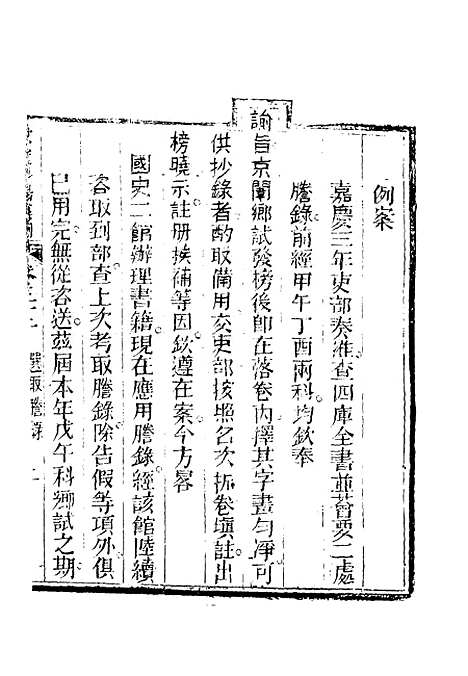 例案
嘉慶三年吏部奏准查四庫全書並薈要二處
謄錄前經甲午丁酉兩科均欽奉
諭旨京闈鄉試發榜後卽在落卷內擇其字畫勻淨可
供抄錄者酌取備用交吏部按照名次拆卷塡註出
榜曉示註册挨補等因欽遵在案今方畧
國史二館辦理書籍現在應用謄錄經該館陸續
咨取到部查上次考取謄錄除告假等項外俱
已用完無從咨送茲屆本年戊午科鄉試之期
選取謄錄